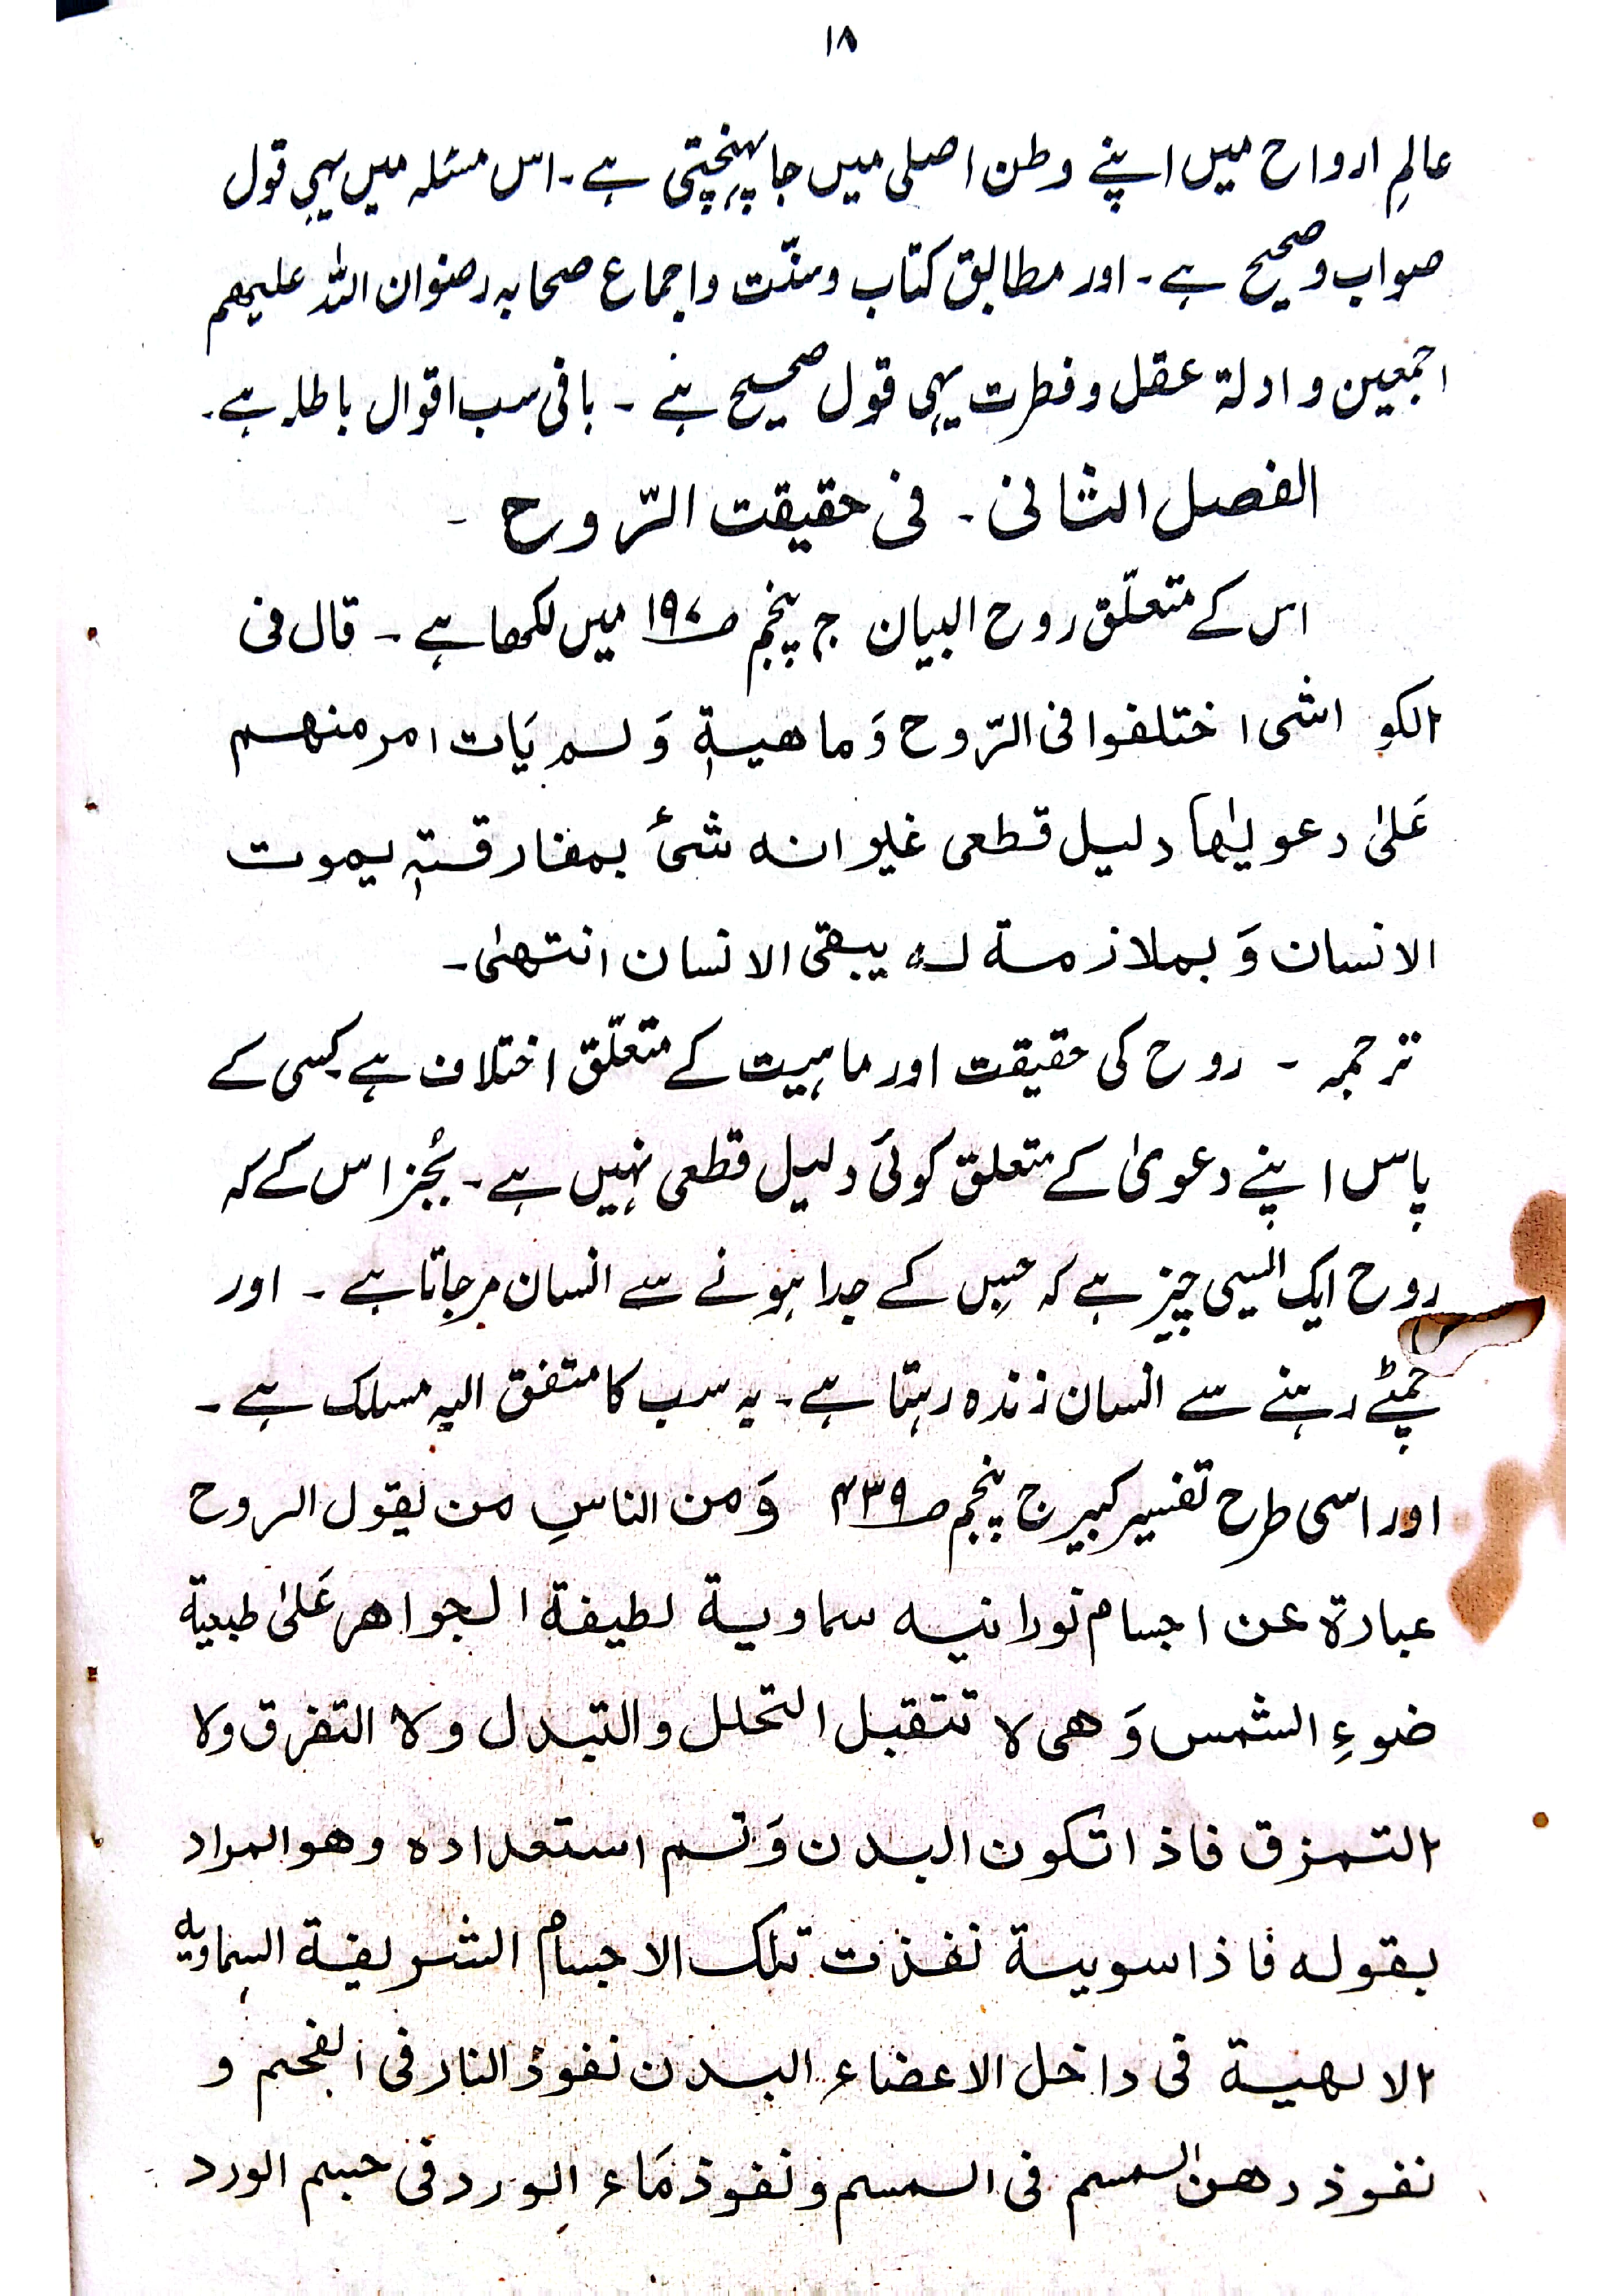 ۱۸
عالمِ ارواح میں اپنے وطن اصلی میں جا پہنچتی ہے۔ اس مسئلہ میں یہی قول
صواب و صحیح ہے۔ اور مطابق کتاب وسنّت واجماع صحابہ رضوان اللہ علیہم
اجمعین و ادلۃ عقل و فطرت یہی قول صحیح ہے ۔ باقی سب اقوال باطلہ ہے۔
الفصل الثانی ۔ فی حقیقت الرّوح ۔
اس کے متعلّق روح البیان ج پنجم ص۱۹۷ میں لکھا ہے ۔ قال فی
الکواشی اختلفوا فی الرّوح وَماھیۃٖ وَلم یَات امر منھم
عَلیٰ دعویٰھا دلیل قطعی غیر انہ شیٔ بمفارقتہٖ یموت
الانسان وَ بملازمۃ لہ یبقی الانسان انتھیٰ۔
ترجمہ ۔ روح کی حقیقت اور ماہیت کے متعلّق اختلاف ہے کسی کے
پاس اپنے دعویٰ کے متعلق کوئی دلیل قطعی نہیں ہے۔ بُجز اس کے کہ
روح ایک ایسی چیز ہے کہ جس کے جدا ہونے سے انسان مر جاتا ہے ۔ اور
چمٹے رہنے سے انسان زندہ رہتا ہے۔ یہ سب کا متفق الیہ مسلک ہے ۔
اور اسی طرح تفسیر کبیر ج پنجم ص۴۳۹ وَمن الناسِ من یقول الروح
عبارۃ عن اجسام نورانیہ سماویۃ لطیفۃ الجواھر عَلیٰ طبعیۃ
ضوءِ الشمس وَ ھی لا تتقبل التحلل والتبدل ولا التفرق ولا
التمزق فاذا تکون البدن وَتم استعدادہ وھوالمراد
بقولہ فاذا سویۃ نفذت تلک الاجسام الشریفۃ السماویہ
الالھیۃ فی داخل الاعضاء البدن نفوذ النار فی الفحم و
نفوذ دھن السمسم فی السمسم ونفوذ مَاء الورد فی جسم الورد